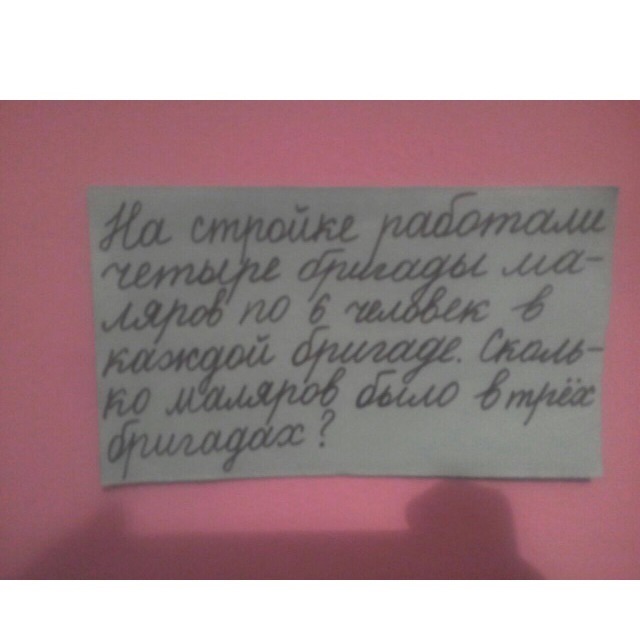 На стройке работали
четыре бригады ма-
ляров по 6 человек в
каждой бригаде. Сколь-
ко маляров было в трёх
бригадах?